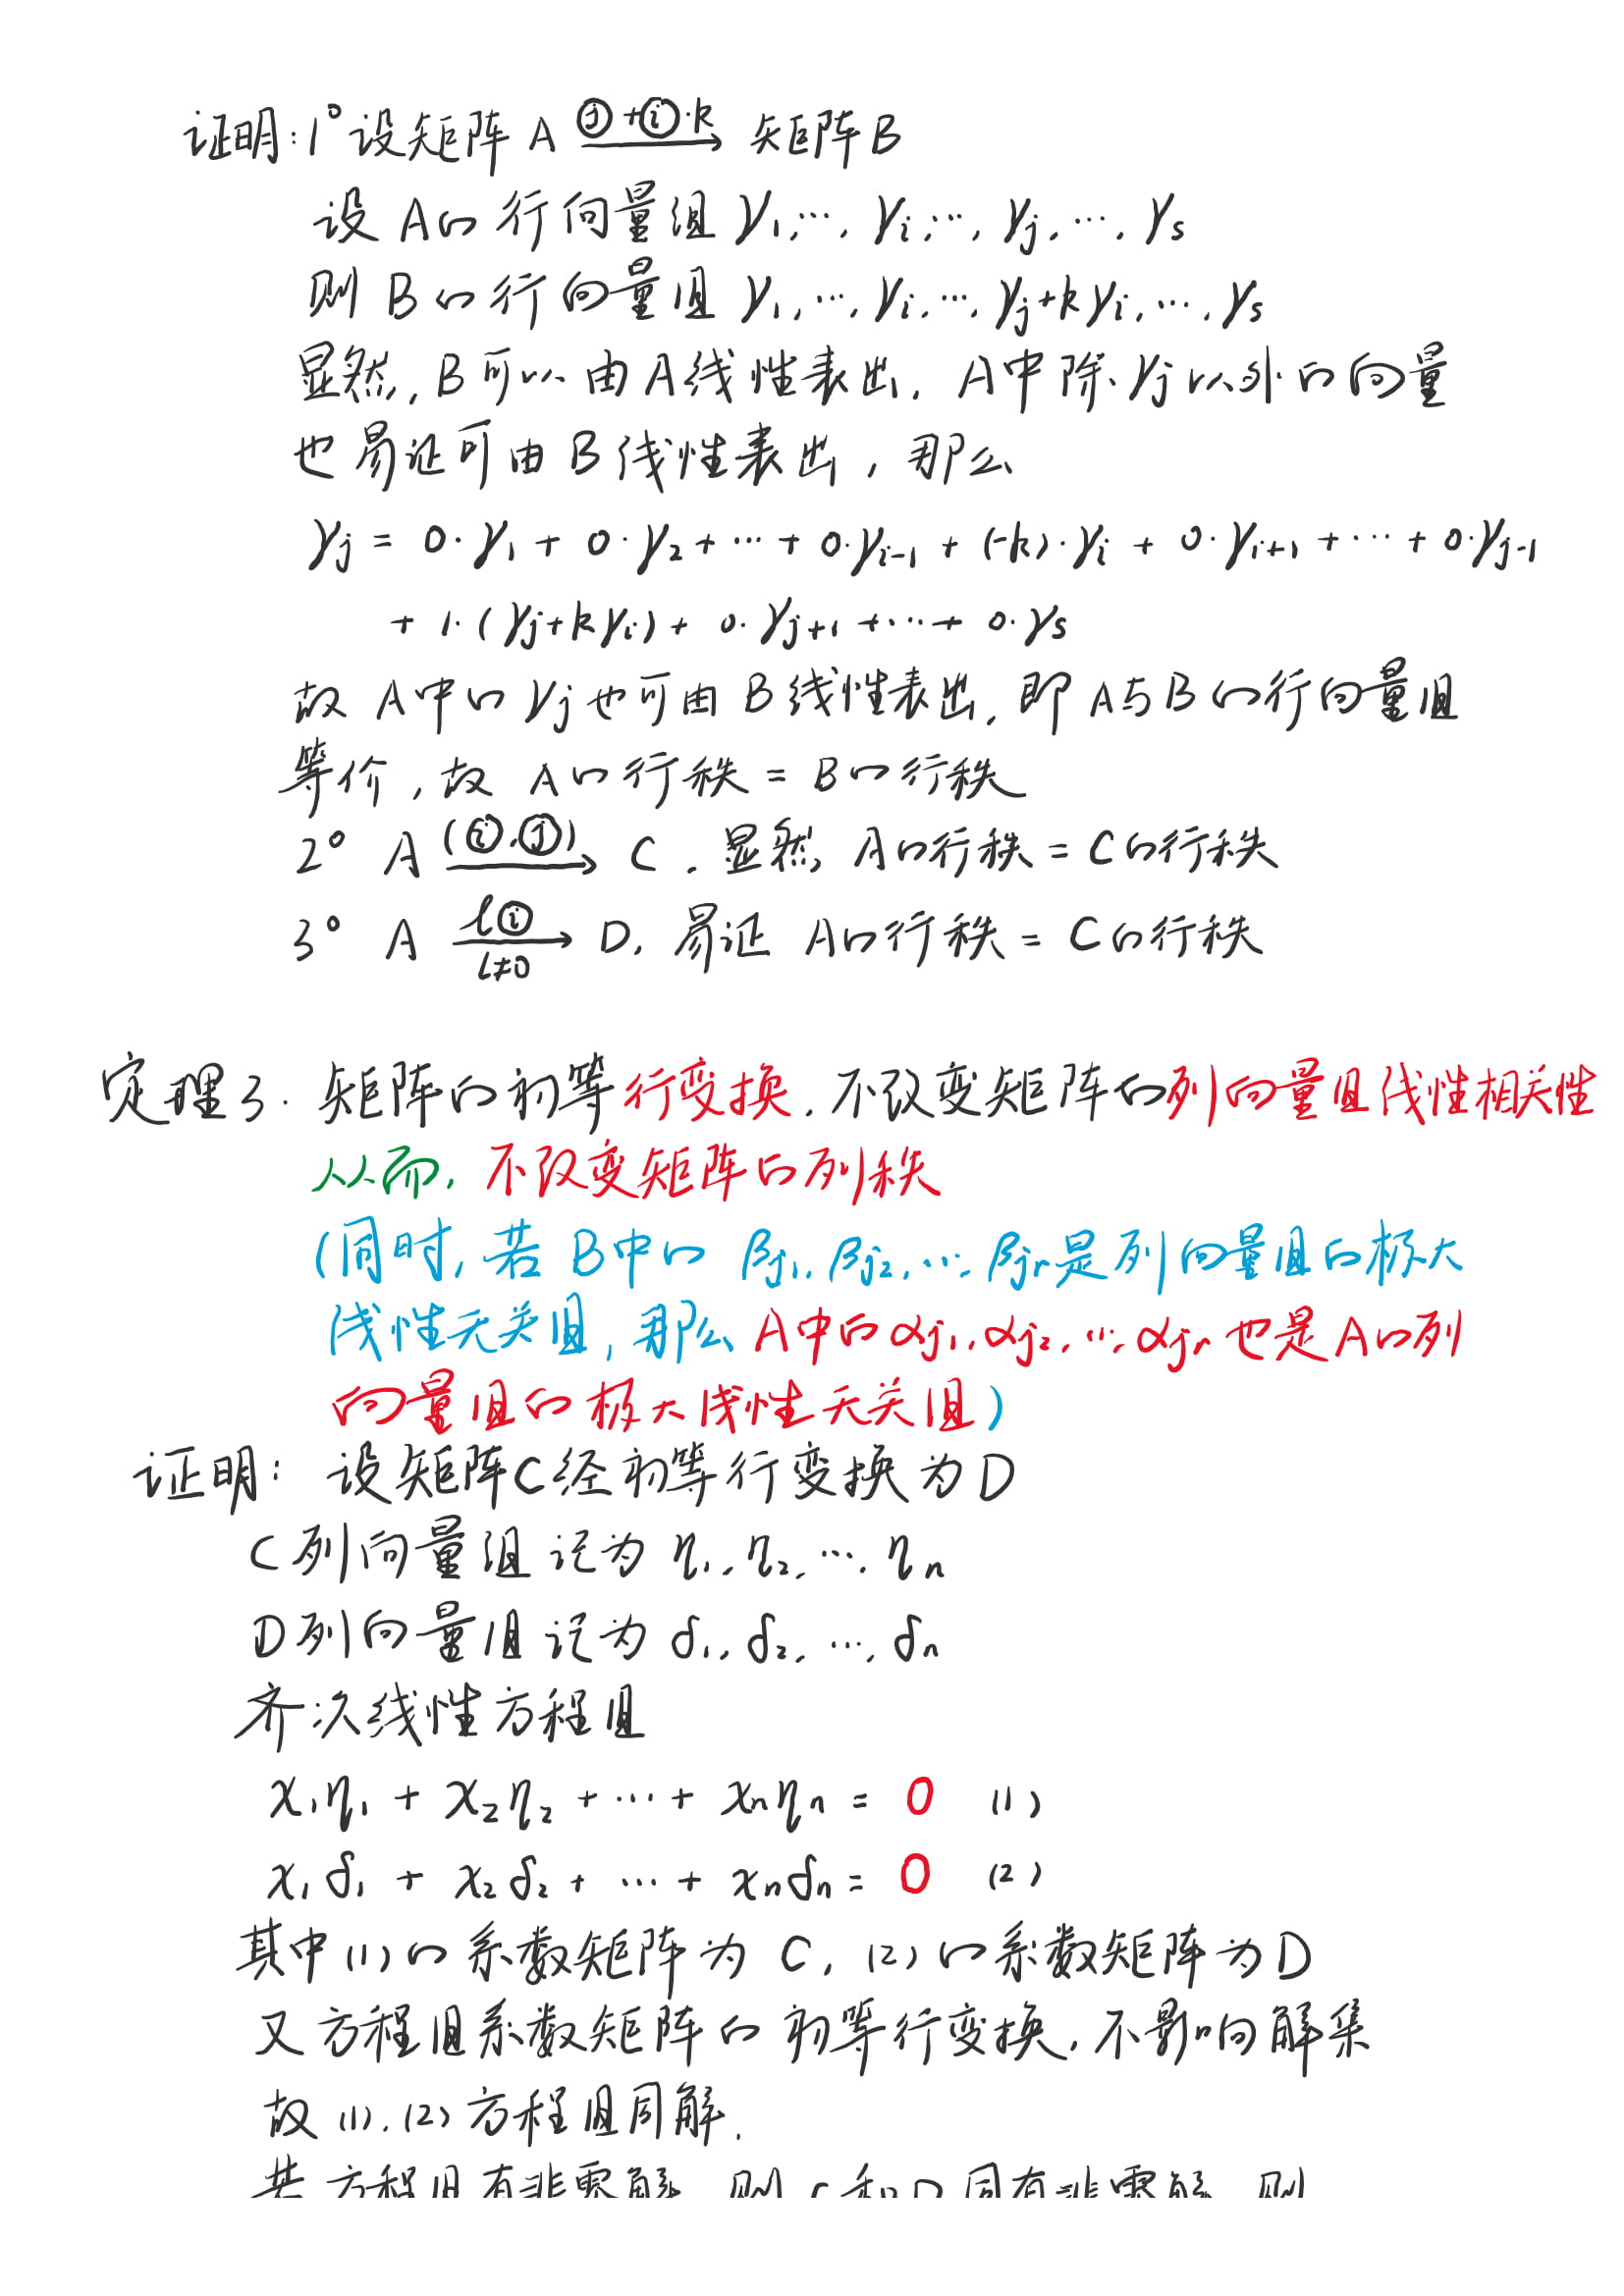 证明:1° 设矩阵 A —(ⓙ+ⓘ·k)→ 矩阵B
设 A的 行向量组 γ₁,…, γᵢ,…, γⱼ,…, γₛ
则 B的行向量组 γ₁,…, γᵢ,…, γⱼ+kγᵢ,…, γₛ
显然, B可以由A线性表出, A中除γⱼ以外的向量
也易证可由B线性表出, 那么
γⱼ = 0·γ₁ + 0·γ₂ + … + 0·γᵢ₋₁ + (-k)·γᵢ + 0·γᵢ₊₁ + … + 0·γⱼ₋₁
+ 1·(γⱼ+kγᵢ) + 0·γⱼ₊₁ + … + 0·γₛ
故 A中的γⱼ也可由B线性表出, 即A与B的行向量组
等价, 故 A的行秩 = B的行秩
2° A —(ⓘ,ⓙ)→ C. 显然, A的行秩 = C的行秩
3° A —lⓘ, l≠0→ D, 易证 A的行秩 = C的行秩
定理3. 矩阵的初等行变换, 不改变矩阵的列向量组线性相关性
从而, 不改变矩阵的列秩
(同时, 若 B中的 βj₁, βj₂, …, βjr是列向量组的极大
线性无关组, 那么A中的αj₁, αj₂, …, αjr也是A的列
向量组的极大线性无关组)
证明: 设矩阵C经初等行变换为D
C列向量组记为 η₁, η₂, …, ηn
D列向量组记为 δ₁, δ₂, …, δn
齐次线性方程组
x₁η₁ + x₂η₂ + … + xnηn = 0 (1)
x₁δ₁ + x₂δ₂ + … + xnδn = 0 (2)
其中(1)的系数矩阵为 C, (2)的系数矩阵为D
又方程组系数矩阵的初等行变换, 不影响解集
故(1), (2)方程组同解.
若方程组有非零解, 则 C和D同有非零解, 则